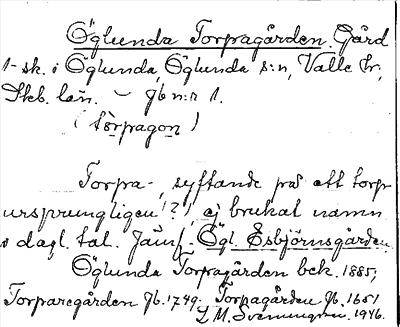 Öglunda Torpagården. Gård
1 sk. i Öglunda, Öglunda s:n, Valle hr,
Skb. län. – Jb n:r 1.
(tòrpagon)
Torpa-, syftande på ett torp
ursprungligen (?), ej brukat namn
i dagl. tal. Jämf. Ögl. Esbjörnsgården.
Öglunda Torpagården bek. 1885,
Torparegården Jb. 1749. Torpagården Jb. 1651
L. M. Svenungson. 1946.